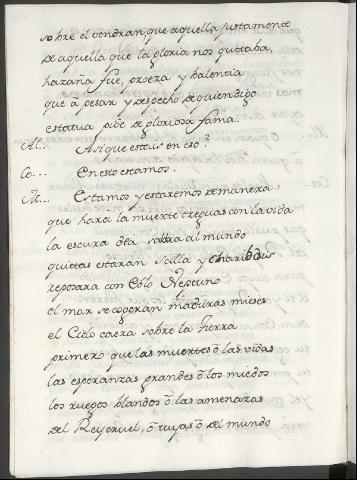 sobre el vendran, que aquella justamente
de aquella que la gloria nos quitaba,
hazaña fue, proeza y balentia
que a pesar y despecho de quien digo
estatua pide de gloriosa fama.
Al... Asi que estais en eso?
Co... En esto estamos.
At... Estamos y estaremos de manera
que hara la muerte treguas con la vida
la escura ôta saldra al mundo
quietas estaran Scilla y Charibdis
reposara con Eolo Neptuno
el mar se cogeran maduras mieses
el Cielo caera sobre la tierra
primero que las muertes ô las vidas
las esperanzas grandes ô los miedos
los ruegos blandos ô las amenazas
del Rey cruel, ô tuyas ô del mundo